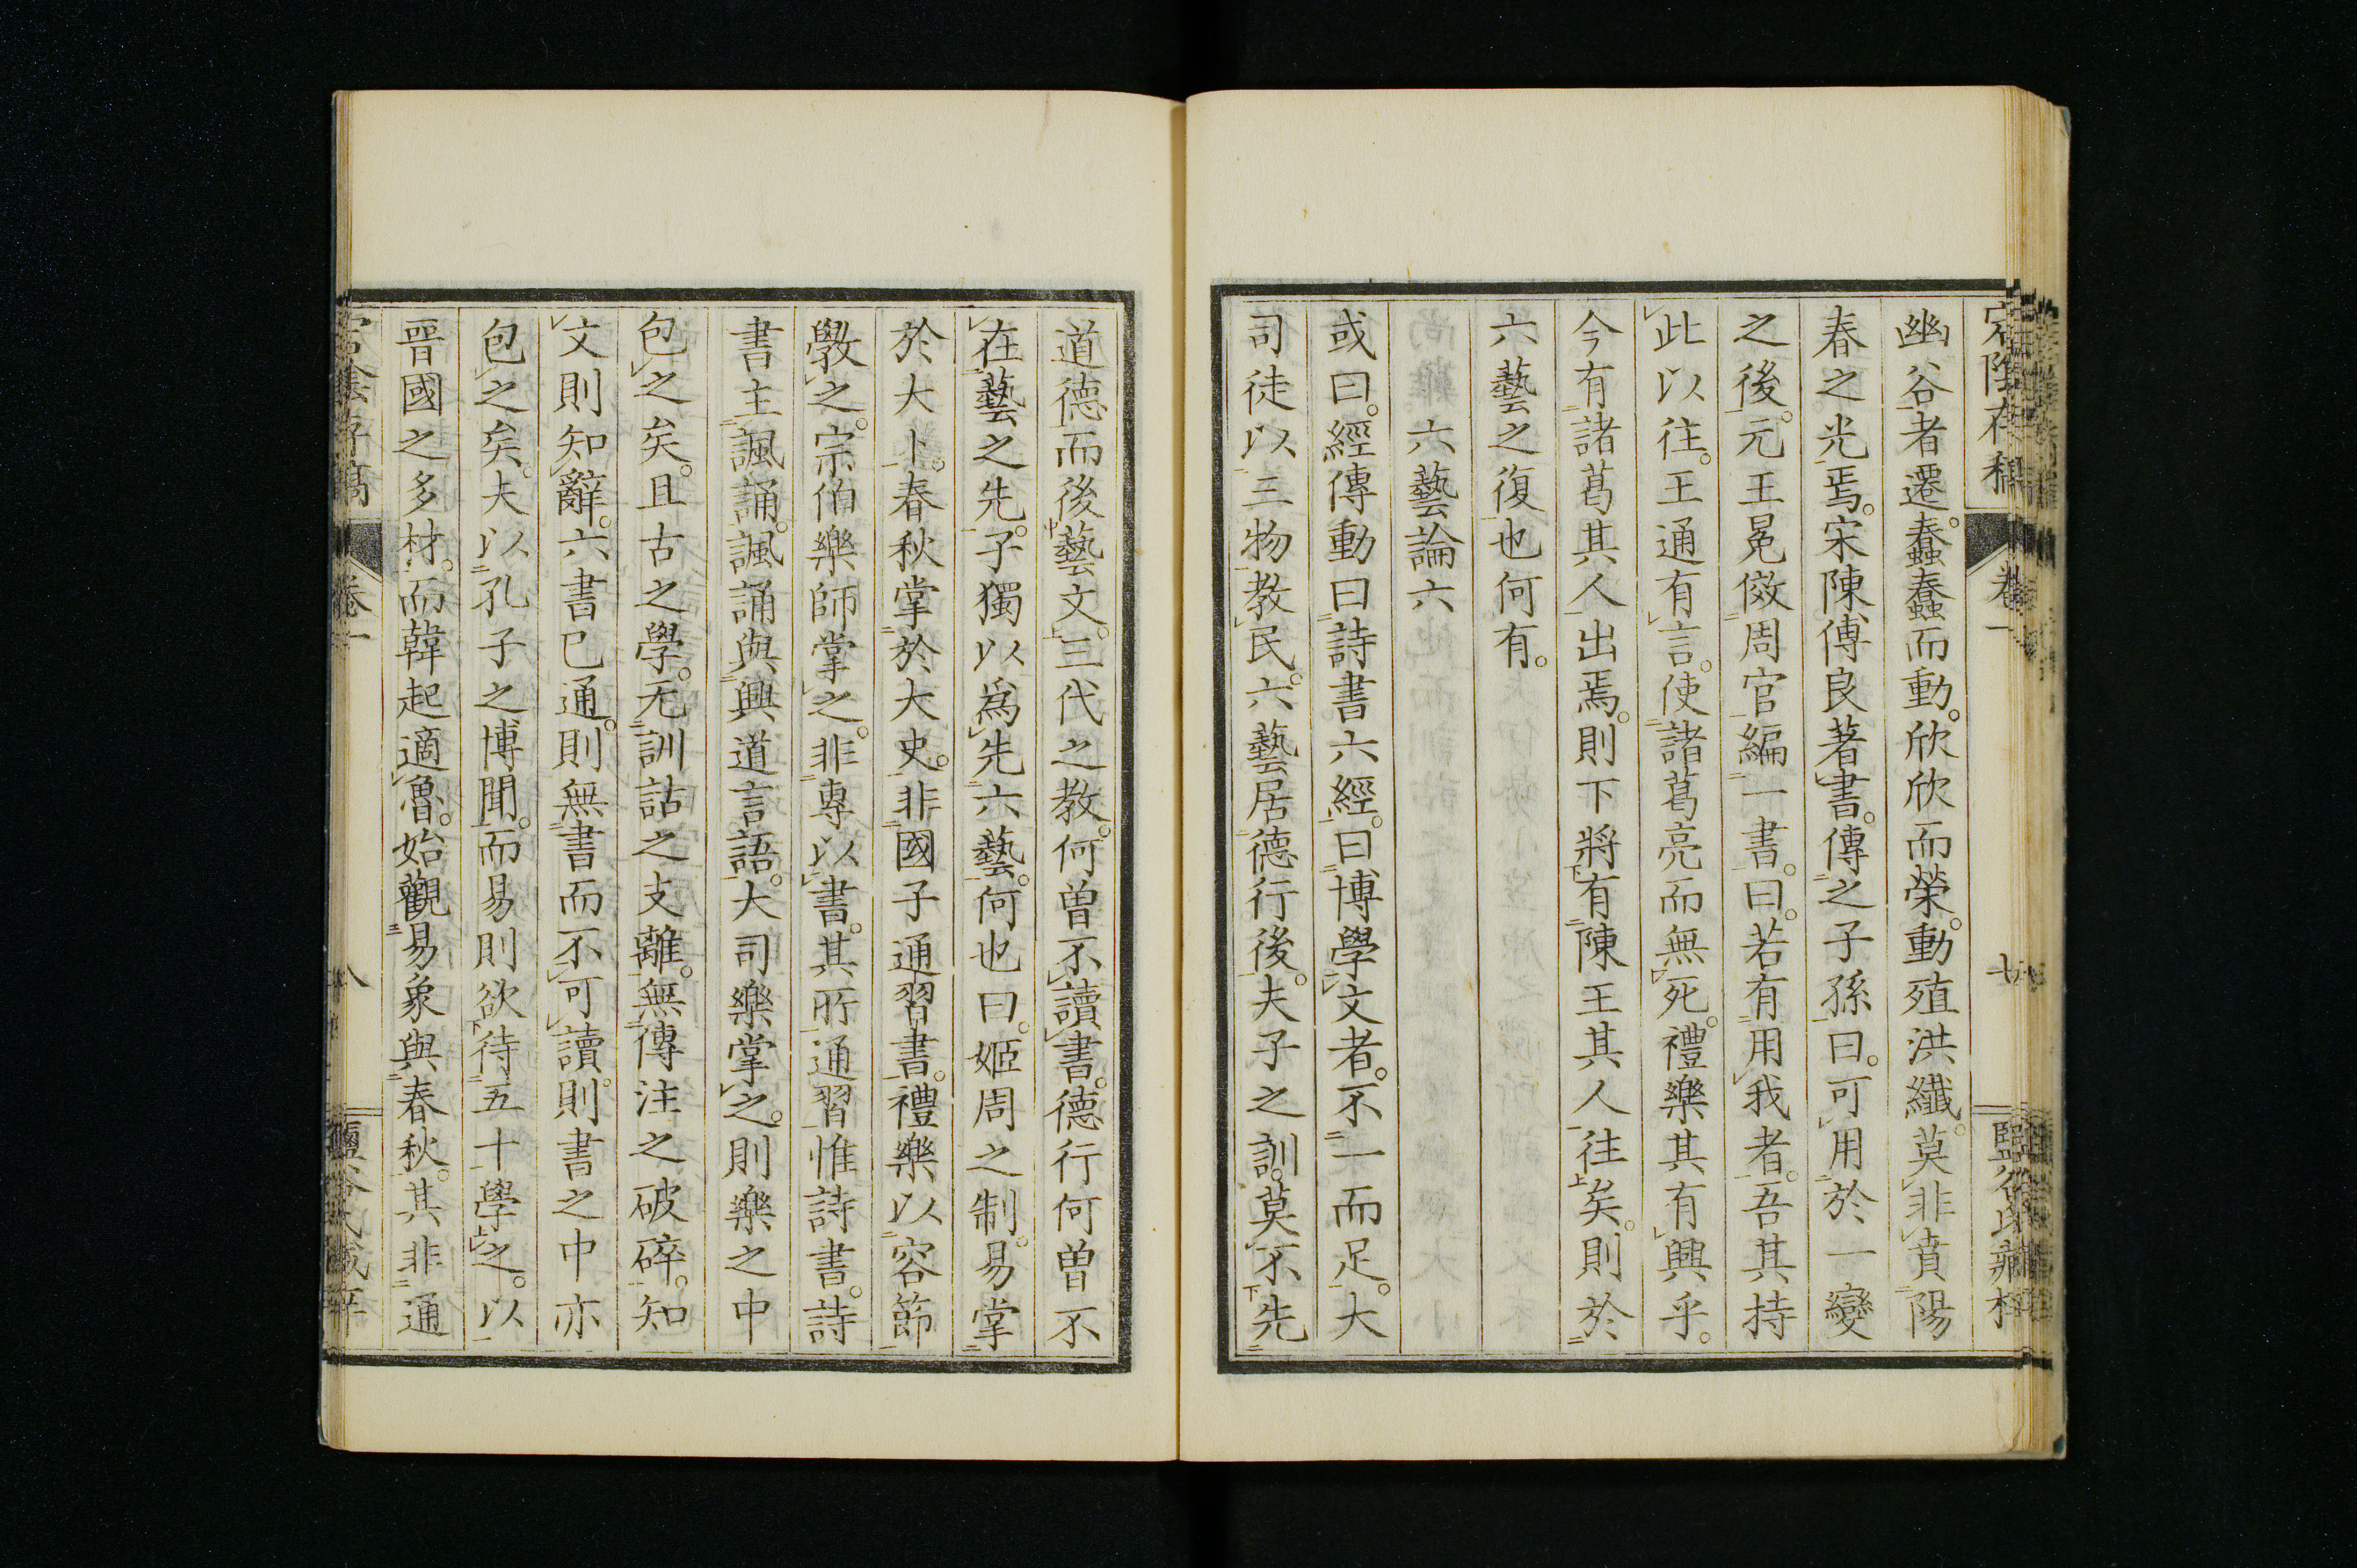 宕陰存稿
卷一
七
幽谷者遷。蠢蠢而動。欣欣而榮。動殖洪纖。莫非賁陽
春之光焉。宋陳傅良著書。傳之子孫曰。可用於一變
之後。元王冕倣周官編一書。曰。若有用我者。吾其持
此以往。王通有言。使諸葛亮而無死。禮樂其有興乎。
今有諸葛其人出焉。則下將有陳王其人往矣。則於
六藝之復也何有。
六藝論六
或曰。經傳動曰詩書六經。曰博學文者。不一而足。大
司徒以三物教民。六藝居德行後。夫子之訓。莫不先
道德而後藝文。三代之教。何曾不讀書。德行何曾不
在藝之先。子獨以爲先六藝。何也曰。姬周之制。易掌
於大卜。春秋掌於大史。非國子通習書。禮樂以容節
斅之。宗伯樂師掌之。非專以書。其所通習惟詩書。詩
書主諷誦。諷誦與興道言語。大司樂掌之。則樂之中
包之矣。且古之學。无訓詁之支離。無傳注之破碎。知
文則知辭。六書已通。則無書而不可讀。則書之中亦
包之矣。夫以孔子之博聞。而易則欲待五十學之。以
晉國之多材。而韓起適魯。始觀易象與春秋。其非通
宕陰存稿
卷一
八